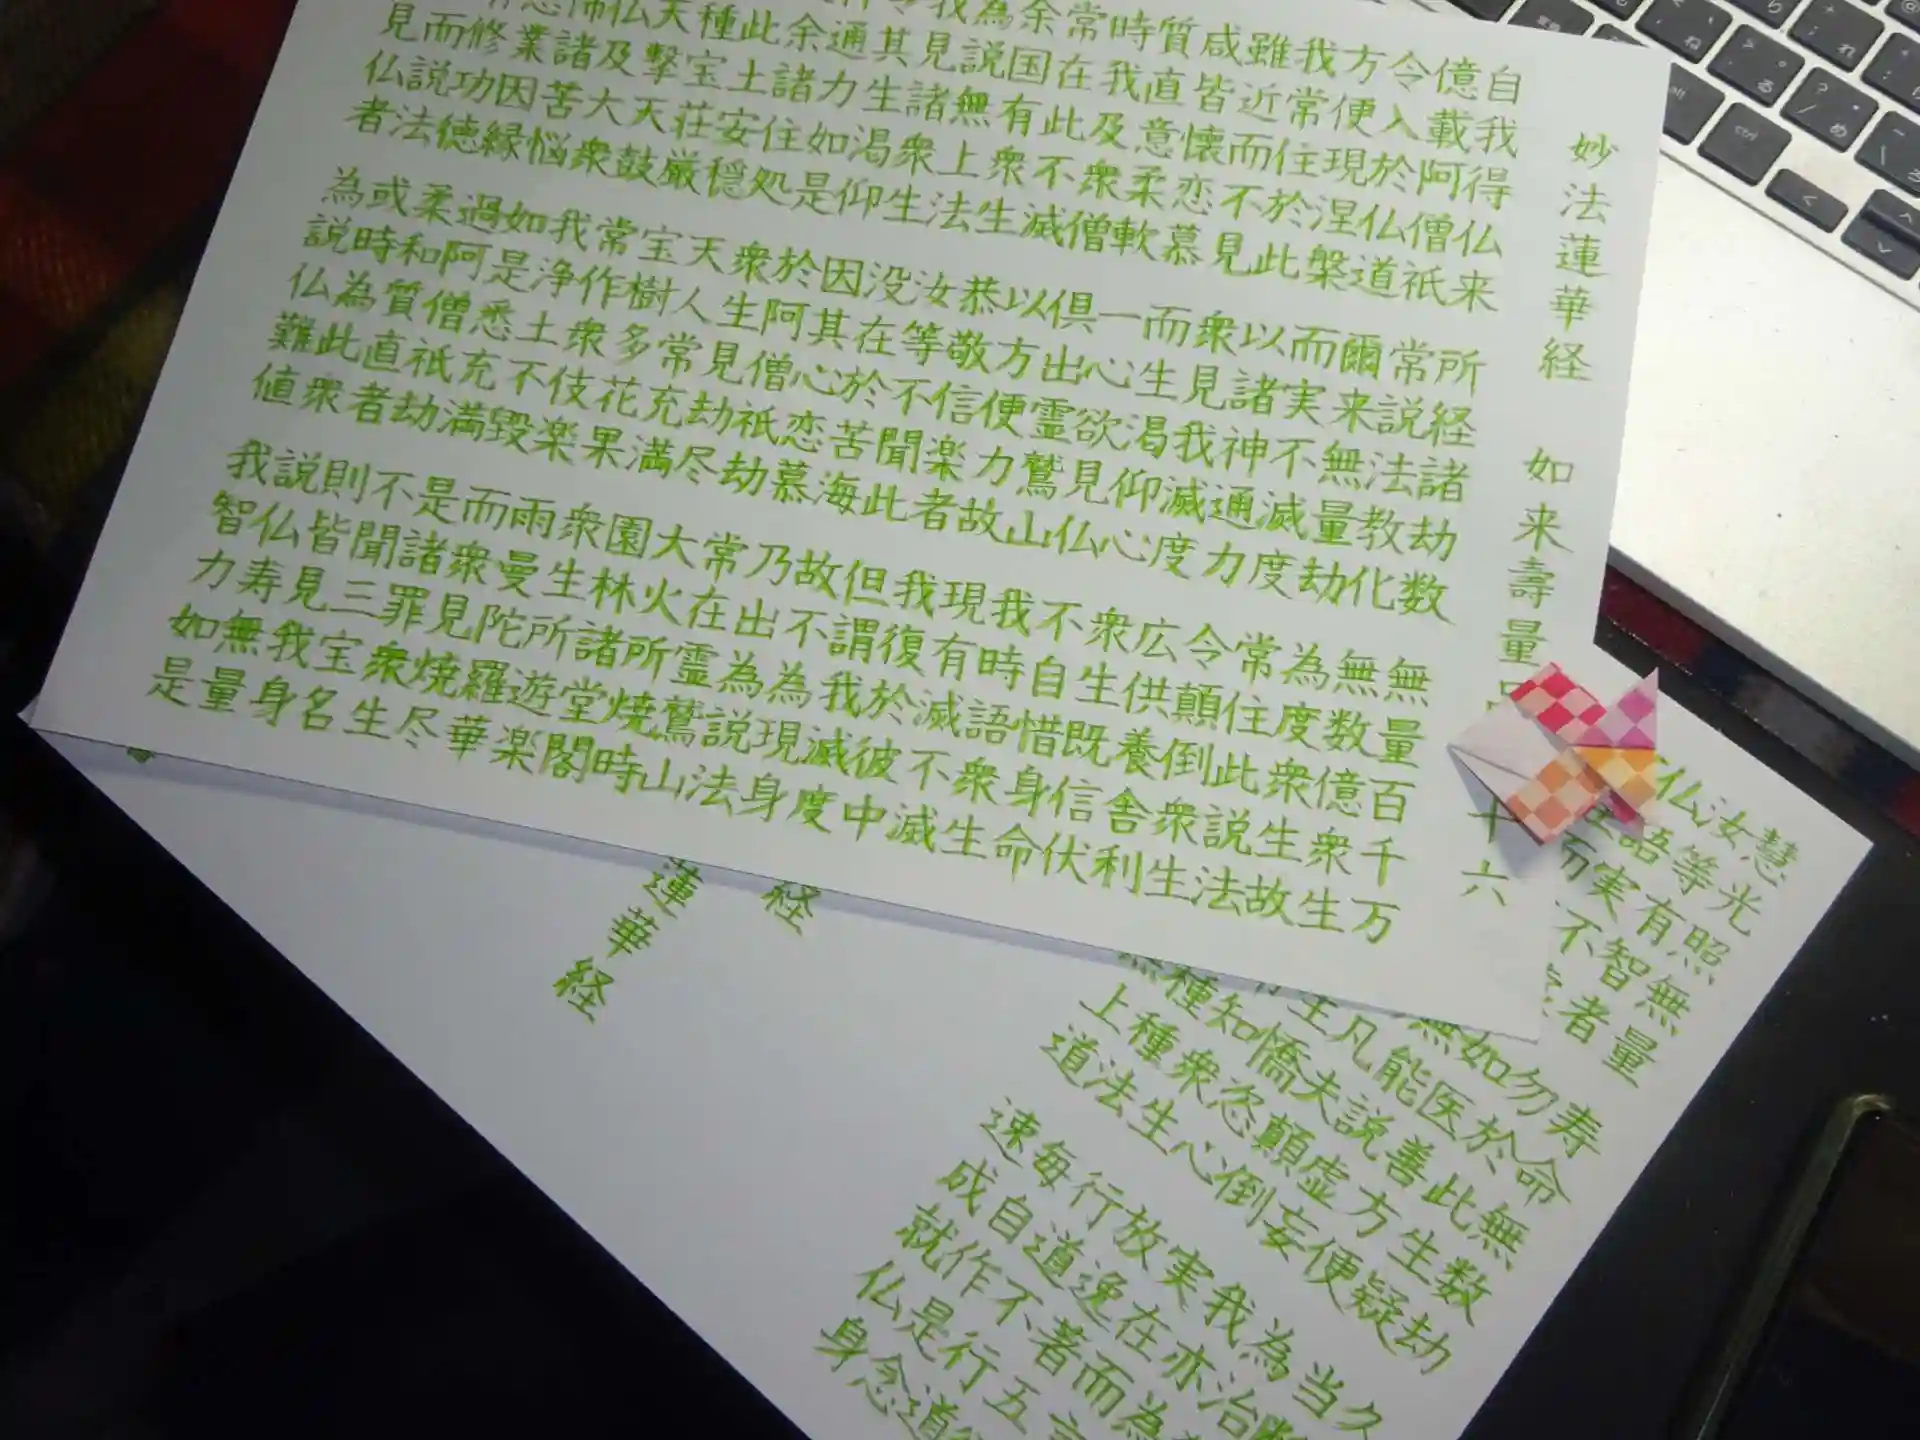 妙法蓮華経 如来壽量 十六
自我得仏来 所経諸劫数 無量百千万
億載阿僧祇 常説法教化 無数億衆生
令入於仏道 爾来無量劫 為度衆生故
方便現涅槃 而実不滅度 常住此説法
我常住於此 以諸神通力 令顛倒衆生
雖近而不見 衆見我滅度 広供養舎利
咸皆懐恋慕 而生渇仰心 衆生既信伏
質直意柔軟 一心欲見仏 不自惜身命
時我及衆僧 俱出霊鷲山 我時語衆生
常在此不滅 以方便力故 現有滅不滅
余国有衆生 恭敬信楽者 我復於彼中
為説無上法 汝等不聞此 但謂我滅度
我見諸衆生 没在於苦海 故不為現身
其生渇仰 因其心恋慕 乃出為説法
通力如是 於阿僧祇劫 常在霊鷲山
余諸住処 衆生見劫尽 大火所焼時
此土安穏 天人常充満 園林諸堂閣
種宝荘厳 宝樹多花果 衆生所遊楽
天撃天鼓 常作衆伎楽 雨曼陀羅華
仏及大衆 我浄土不毀 而衆見焼尽
怖諸苦悩 如是悉充満 是諸罪衆生
悪業因縁 過阿僧祇劫 不聞三宝名
有修功徳 柔和質直者 則皆見我身
而説法 或時為此衆 説仏寿無量
見仏者 為説仏難値 我智力如是
慧光照無量 寿命無数劫 久
汝等有智者 勿於此生疑 当断
仏語実不 如医善方便 為治
而 無能説虚妄 我亦為
凡夫顛倒 実在而
生憍恣心 放逸著五
知衆生 行道不行道
種種法 毎自作是念
無上道 速成就仏身
経
蓮華経